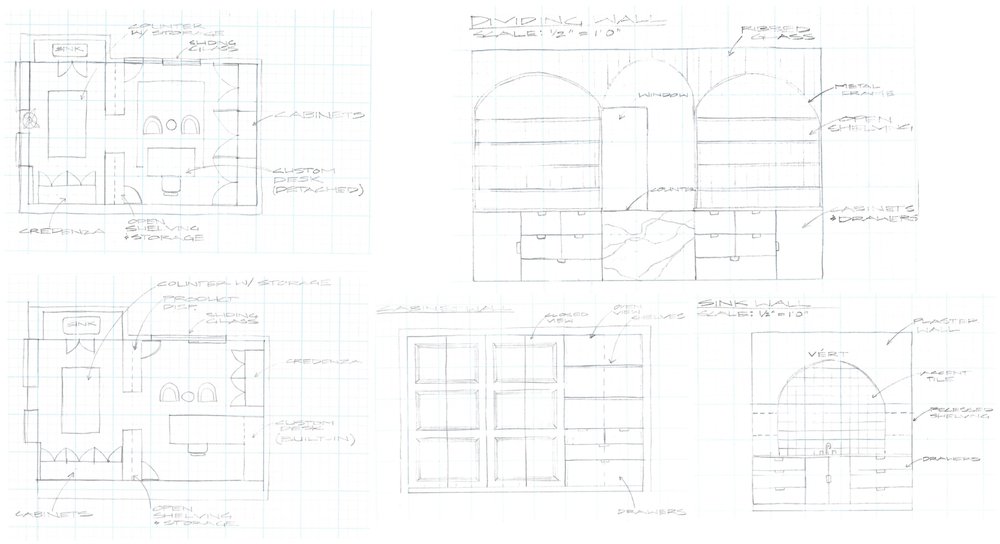 COUNTER
W/ STORAGE
SLIDING
GLASS
SINK
CABINETS
CUSTOM
DESK
(DETACHED)
CREDENZA
OPEN
SHELVING
& STORAGE
DIVIDING WALL
SCALE: 1/2" = 1'0"
RIBBED
GLASS
METAL
FRAME
WINDOW
OPEN
SHELVING
COUNTER
CABINETS
& DRAWERS
COUNTER W/ STORAGE
PRODUCT
DISP.
SLIDING
GLASS
SINK
CREDENZA
CUSTOM
DESK
(BUILT-IN)
CABINETS
OPEN
SHELVING
& STORAGE
CABINET WALL
CLOSED
VIEW
OPEN
VIEW
SHELVES
DRAWERS
SINK WALL
SCALE: 1/2" = 1'0"
PLASTER
WALL
VÉRT
ACCENT
TILE
RECESSED
SHELVING
DRAWERS